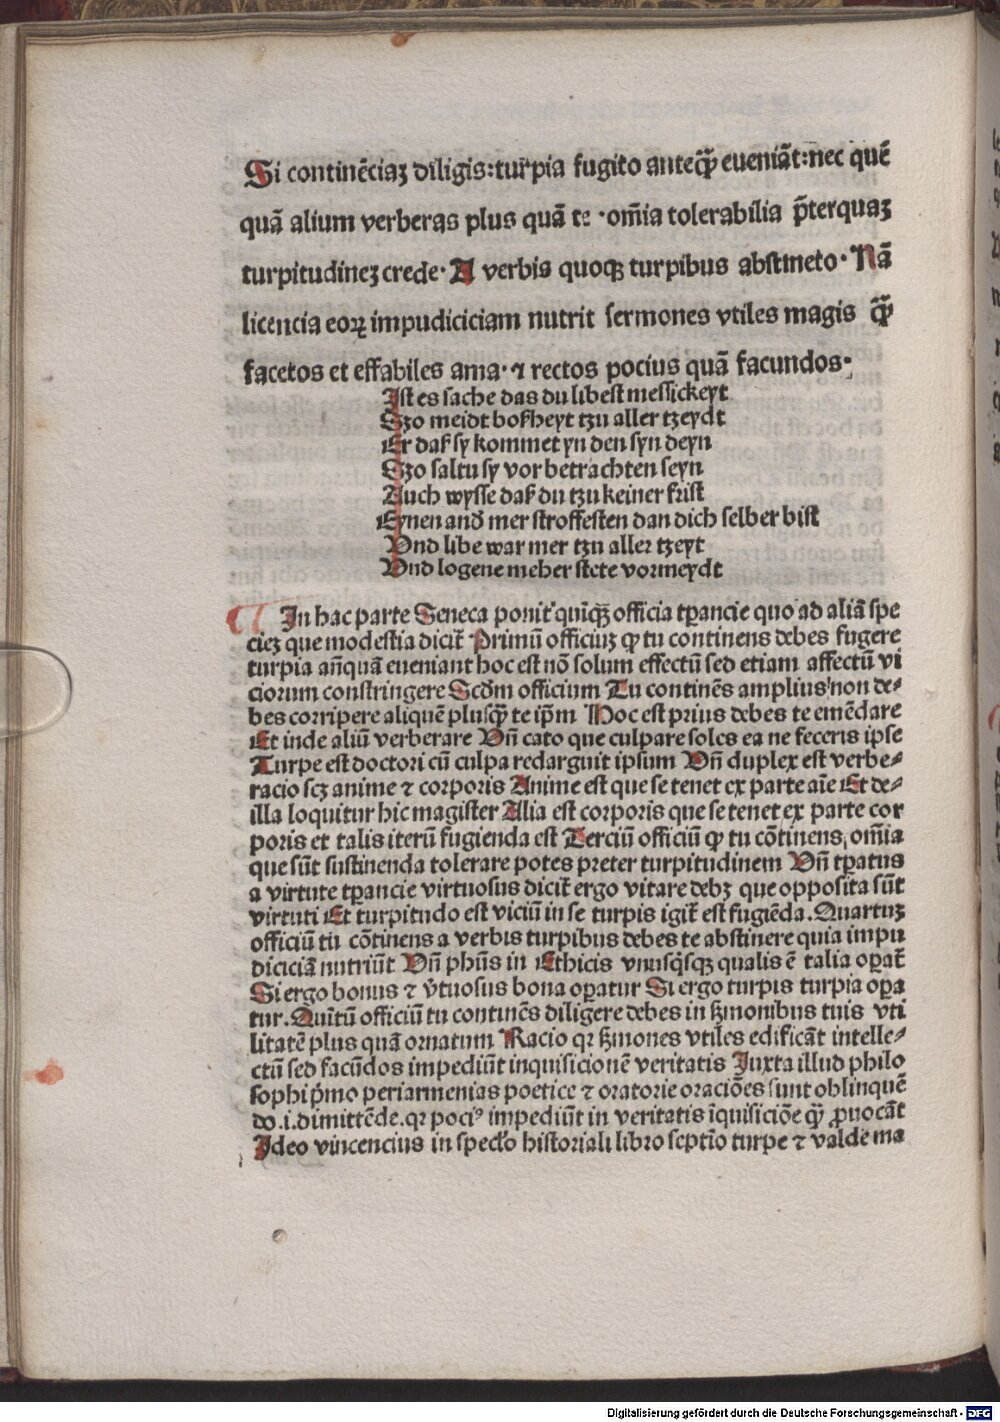 Si continẽciaꝫ diligis:turpia fugito anteq̃ꝫ eueniãt:nec quẽ
quã alium verberas plus quã te ·om̃ia tolerabilia p̃terquaꝫ
turpitudineꝫ crede· A verbis quoqꝫ turpibus abstineto· Nã
licencia eoꝝ impudiciciam nutrit sermones vtiles magis q̃ꝫ
facetos et effabiles ama· ⁊ rectos pocius quã facundos·
Ist es sache das du libest messickeyt
Szo meidt boßheyt tzu aller tzeydt
Er daß sy kommet yn den syn deyn
Szo saltu sy vor betrachten seyn
Auch wysse daß du tzu keiner frist
Eynen and̕ mer stroffesten dan dich selber bist
Vnd libe war mer tzu aller tzeyt
Vnd logene meher stete vormeydt
¶ In hac parte Seneca ponit᷑ quinqꝫ officia tꝑancie quo ad aliã spe
cieꝫ que modestia dicit᷑ Primũ officiuꝫ ꝙ tu continens debes fugere
turpia añquã eueniant hoc est nõ solum effectũ sed etiam affectũ vi
ciorum constringere Scd̃m officium Tu continẽs amplius non de⸗
bes corripere aliquẽ plusq̃ꝫ te ip̃m Hoc est prius debes te emẽdare
Et inde aliũ verberare Vñ cato que culpare soles ea ne feceris ipse
Turpe est doctori cũ culpa redarguit ipsum Vñ duplex est verbe⸗
racio scꝫ anime ⁊ corporis Anime est que se tenet ex parte aĩe Et de⸗
illa loquitur hic magister Alia est corporis que se tenet ex parte cor
poris et talis iterũ fugienda est Terciũ officiũ ꝙ tu cõtinens, om̃ia
que sũt sustinenda tolerare potes preter turpitudinem Vñ tꝑatus
a virtute tꝑancie virtuosus dicit᷑ ergo vitare debꝫ que opposita sũt
virtuti Et turpitudo est viciũ in se turpis igit᷑ est fugiẽda. Quartuꝫ
officiũ tu cõtinens a verbis turpibus debes te abstinere quia impu
diciciã nutriũt Vñ ph̃us in Ethicis vnusq̃sqꝫ qualis ẽ talia oꝑat᷑
Si ergo bonus ⁊ v̕tuosus bona oꝑatur Si ergo turpis turpia oꝑa
tur. Quĩtũ officiũ tu continẽs diligere debes in ẜmonibus tuis vti
litatẽ plus quã ornatum Racio qꝛ ẜmones vtiles edificãt intelle⸗
ctũ sed facũdos impediũt inquisicionẽ veritatis Juxta illud philo
sophi p̃mo periarmenias poetice ⁊ oratorie oraciões sunt oblinquẽ
do .i. dimittẽde. qꝛ poci⁹ impediũt in veritatis ĩquisiciõe q̃ꝫ ꝓuocãt
Ideo vincencius in specl̕o historiali libro septĩo turpe ⁊ valde ma
Digitalisierung gefördert durch die Deutsche Forschungsgemeinschaft - DFG